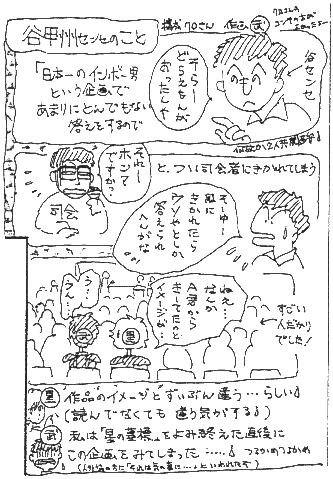 谷甲州センセのこと
構成 クロさん 作画 武
「日本一のインボー男
という企画で
あまりにとんでもない
答えをするので
そら
どらえもんが
おったしゃ
谷センセ
と、つい司会者にきかれてしまう
それー
ホンマ
ですかー
司会
そーゆー
風に
きかれたら
ウソやとしか
答えられ
へんがな
ねえ…
なんか
A君から
きいてたのと
イメージが…
うー
うん…
星
すごい
人だかり
でした!
星 作品のイメージとずいぶん違う…らしい
(読んでなくても違う気がする)
武 私は「星の墓標」をよみ終えた直後に
この企画をみてしまった……
つるかめつるかめ